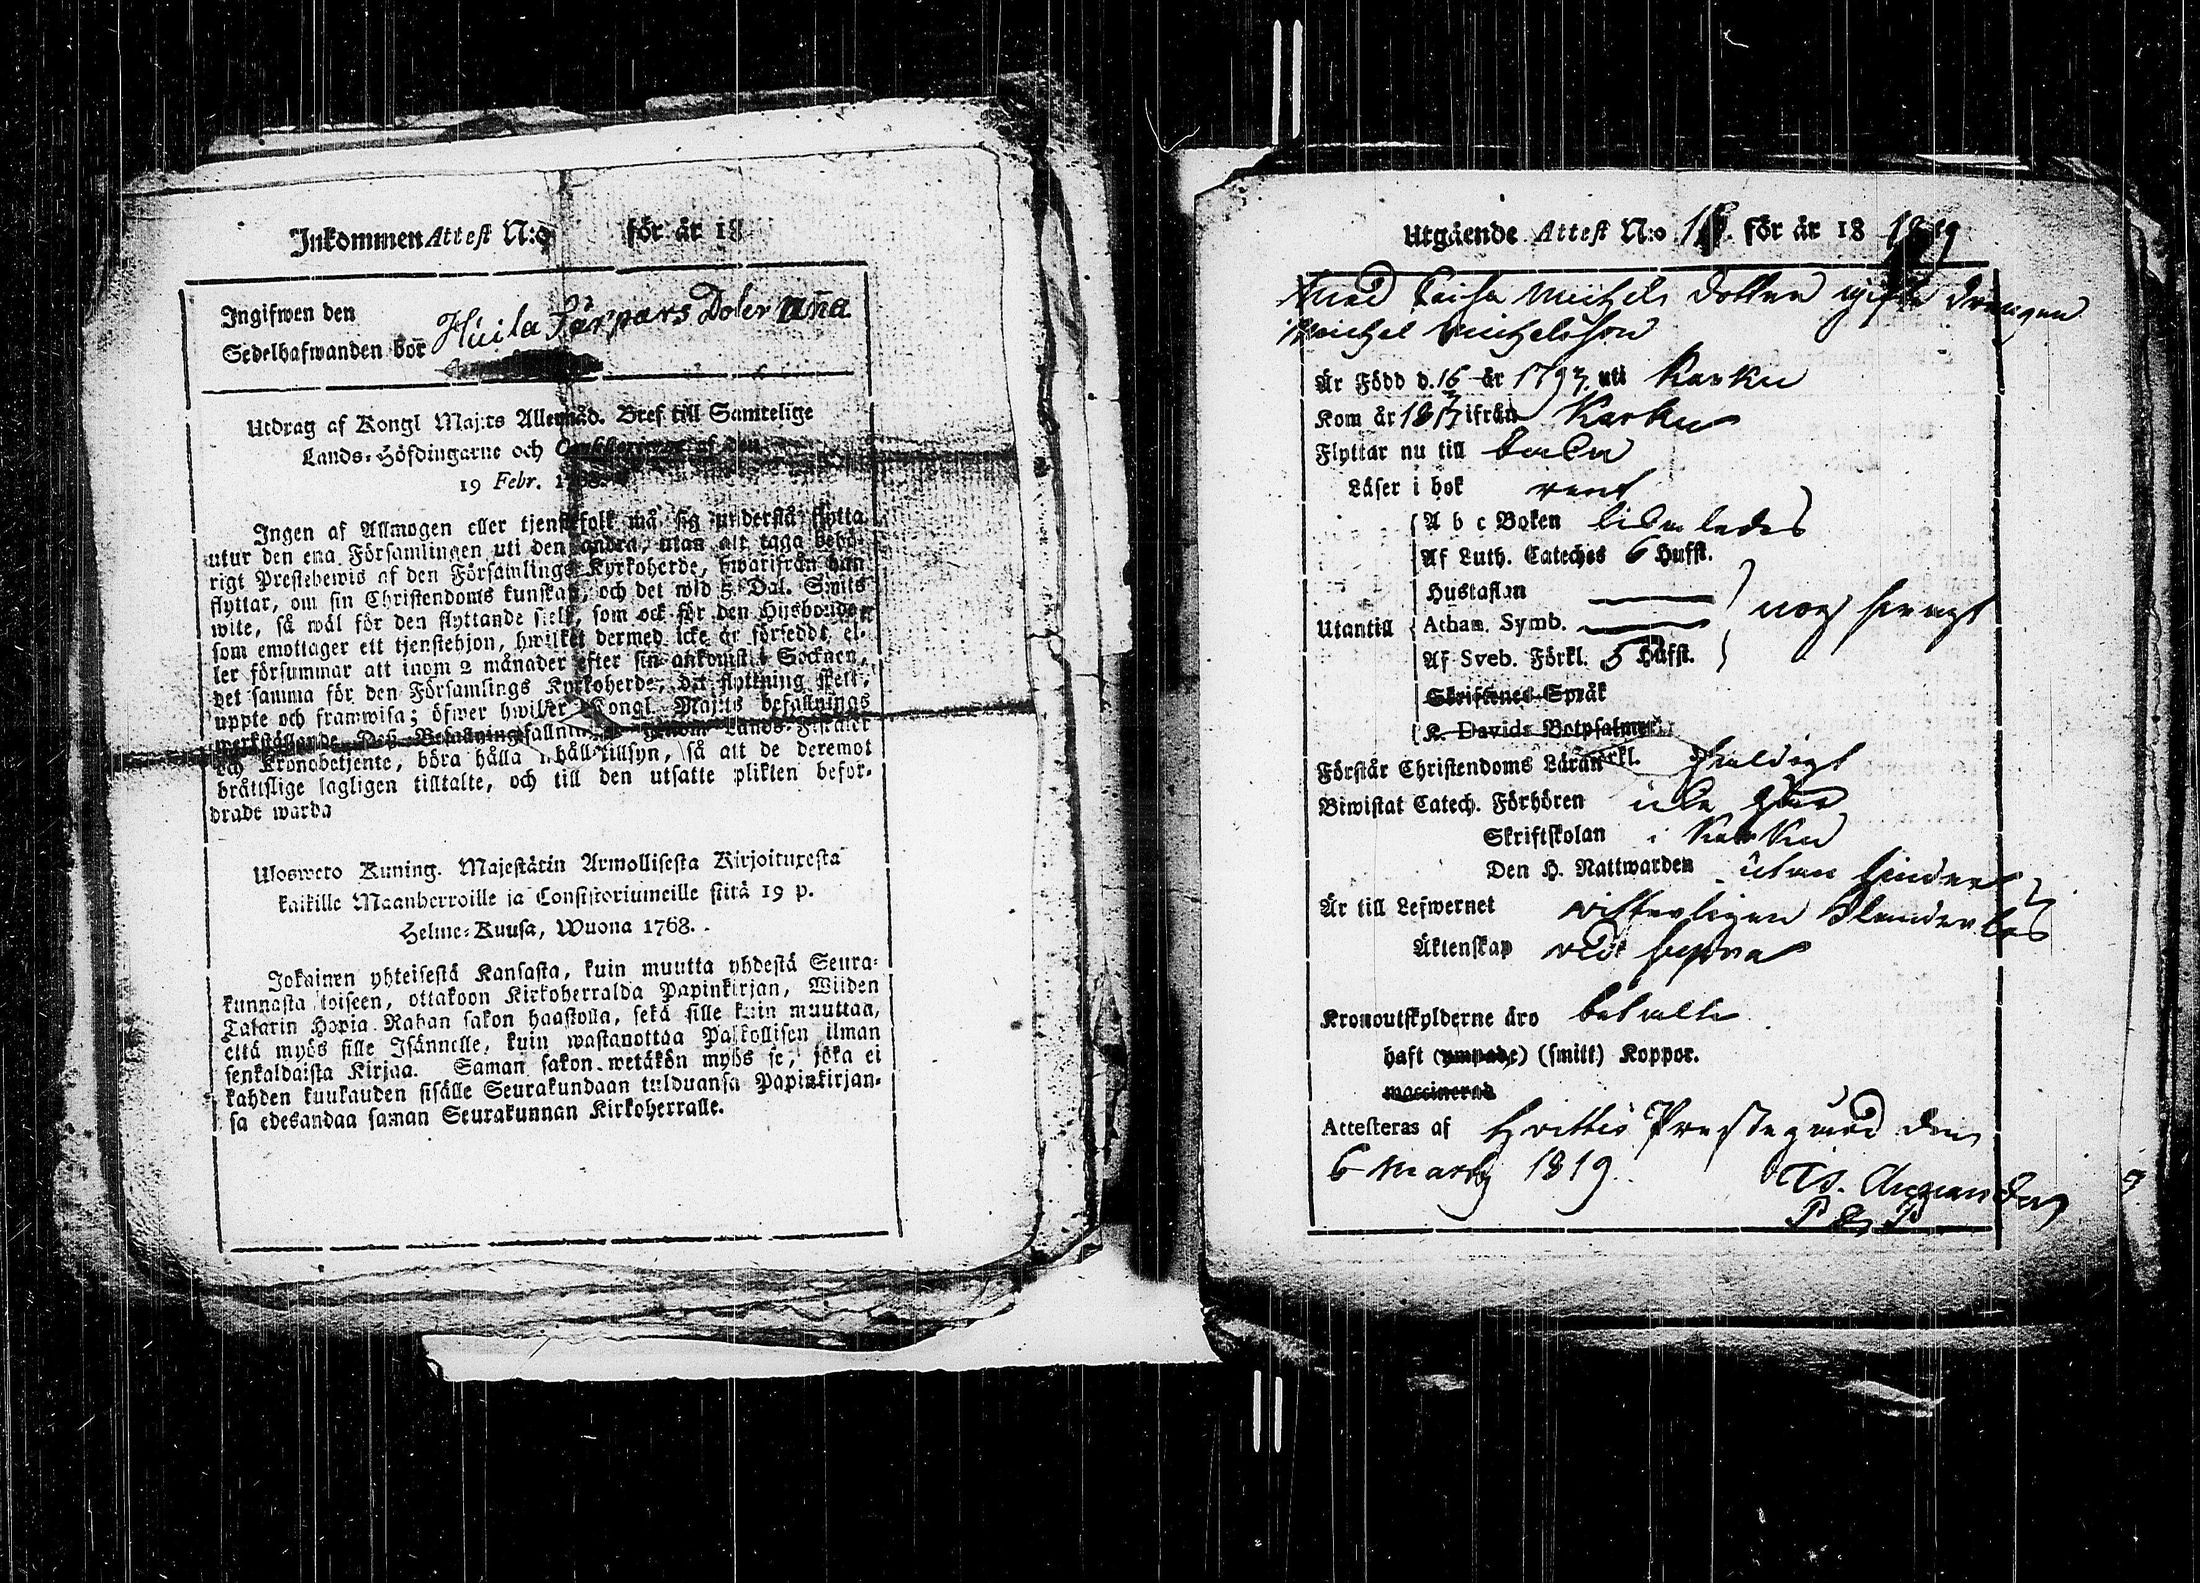 Inkommen Attest N:o för år 18
Ingifwen den
Sedelhafwanden bor Huila Doter Aña
Utdrag af Kongl Maj:ts Allernåd. Bref till Samtelige
Lands-Höfdingarne och af den
19 Febr.
Ingen af Allmogen eller tjenstefolk må sig understå flytta
utur den ena Församlingen uti den andra, utan att taga behö-
rigt Prestebewis af den Församlings Kyrkoherde, hwarifrån han
flyttar, om sin Christendoms kunskap, och det wid 5 Dal. Smts
wite, så wäl för den flyttande sielf, som ock för den Husbonde
som emottager ett tjenstehjon, hwilket dermed icke är försedt, el-
ler försummar att inom 2 månader efter sin ankomst i Socknen,
det samma för den Församlings Kyrkoherde, dit flyttning skett,
uppte och framwisa; öfwer hwilket Kongl. Maj:ts befallnings
werkställande Lands-Fiskaler
och Kronobetjente, böra hålla håll tillsyn, så att de deremot
brättslige lagligen tilltalte, och till den utsatte plikten befor-
drade warda
Uloswero Kuning. Majestätin Armollisesta Kirjoituxesta
kaikille Maanherroille ja Consistoriumeille siitä 19 p.
Helme-Kuusa, Wuona 1768.
Jokainen yhteisestä Kansasta, kuin muutta yhdestä Seura-
kunnasta toiseen, ottakoon Kirkoherralda Papinkirjan, Wiiden
Talarin Hopia Rahan sakon haastolla, sekä sille kuin muuttaa,
että myös sille Isännelle, kuin wastanottaa Palkollisen ilman
senkaldaista Kirjaa. Saman sakon wetäkön myös se, joka ei
kahden kuukauden sisälle Seurakundaan tulduansa Papinkirjan-
sa edesandaa saman Seurakunnan Kirkoherralle.
Utgående Attest N:o för år 18 1819
Caisa Michels dotter gifte Drängen
Michel Michelsson
Är Född d. 16 år 1797 uti Karku
Kom år 1817 ifrån Karku
Flyttar nu till
Läser i bok rent
A b c Boken
Af Luth. Cateches 6 Hufst.
Hustaflan
Utantill Athan. Symb. nog swagt
Af Sveb. Förkl. 5 Hufst.
Skriftenes Språk
K. Davids Botpsalmer
Förstår Christendoms Läran
Biwistat Catech. Förhören
Skriftskolan i Karku
Den H. Nattwarden utan hinder
Är till Lefwernet witterligen
Äktenskap
Kronoutskylderne äro betalte
haft (ympade) (smitt) Koppor.
waccinerad
Attesteras af Hvittis Prestegård den
6 Martij 1819.